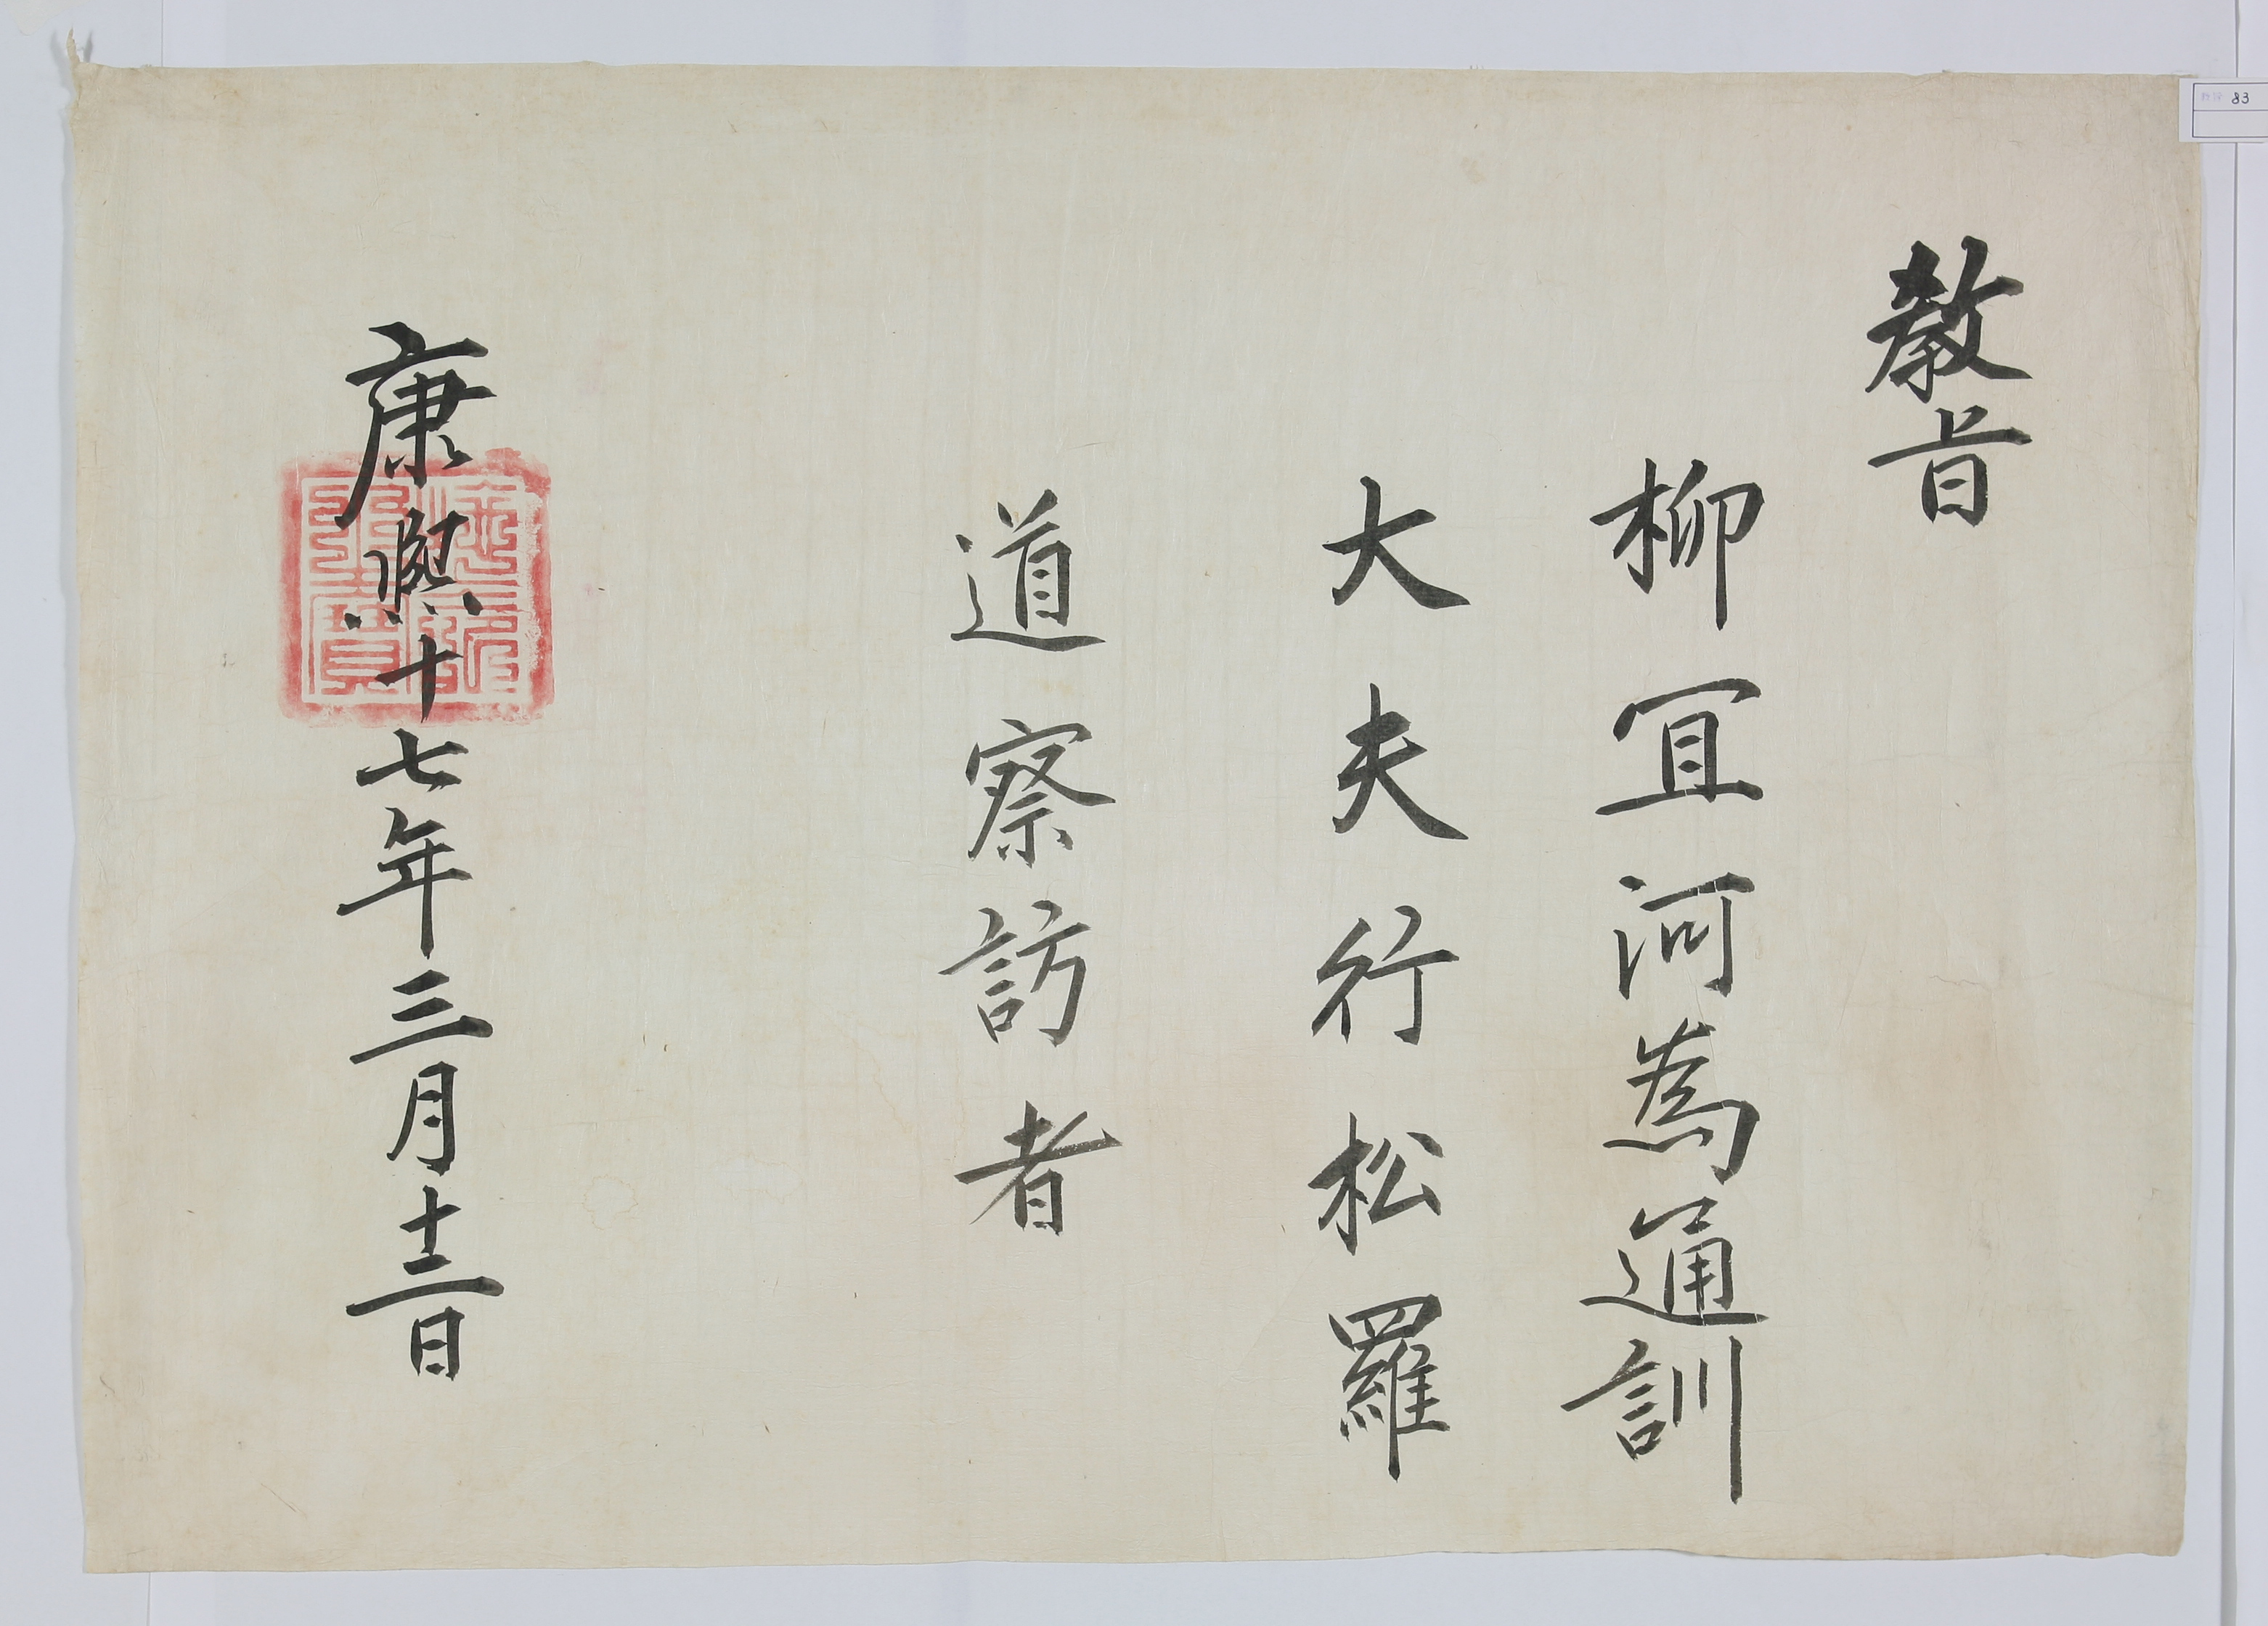 敎旨
柳冝河為通訓
大夫行松羅
道察訪者
康熙十七年三月十二日
83